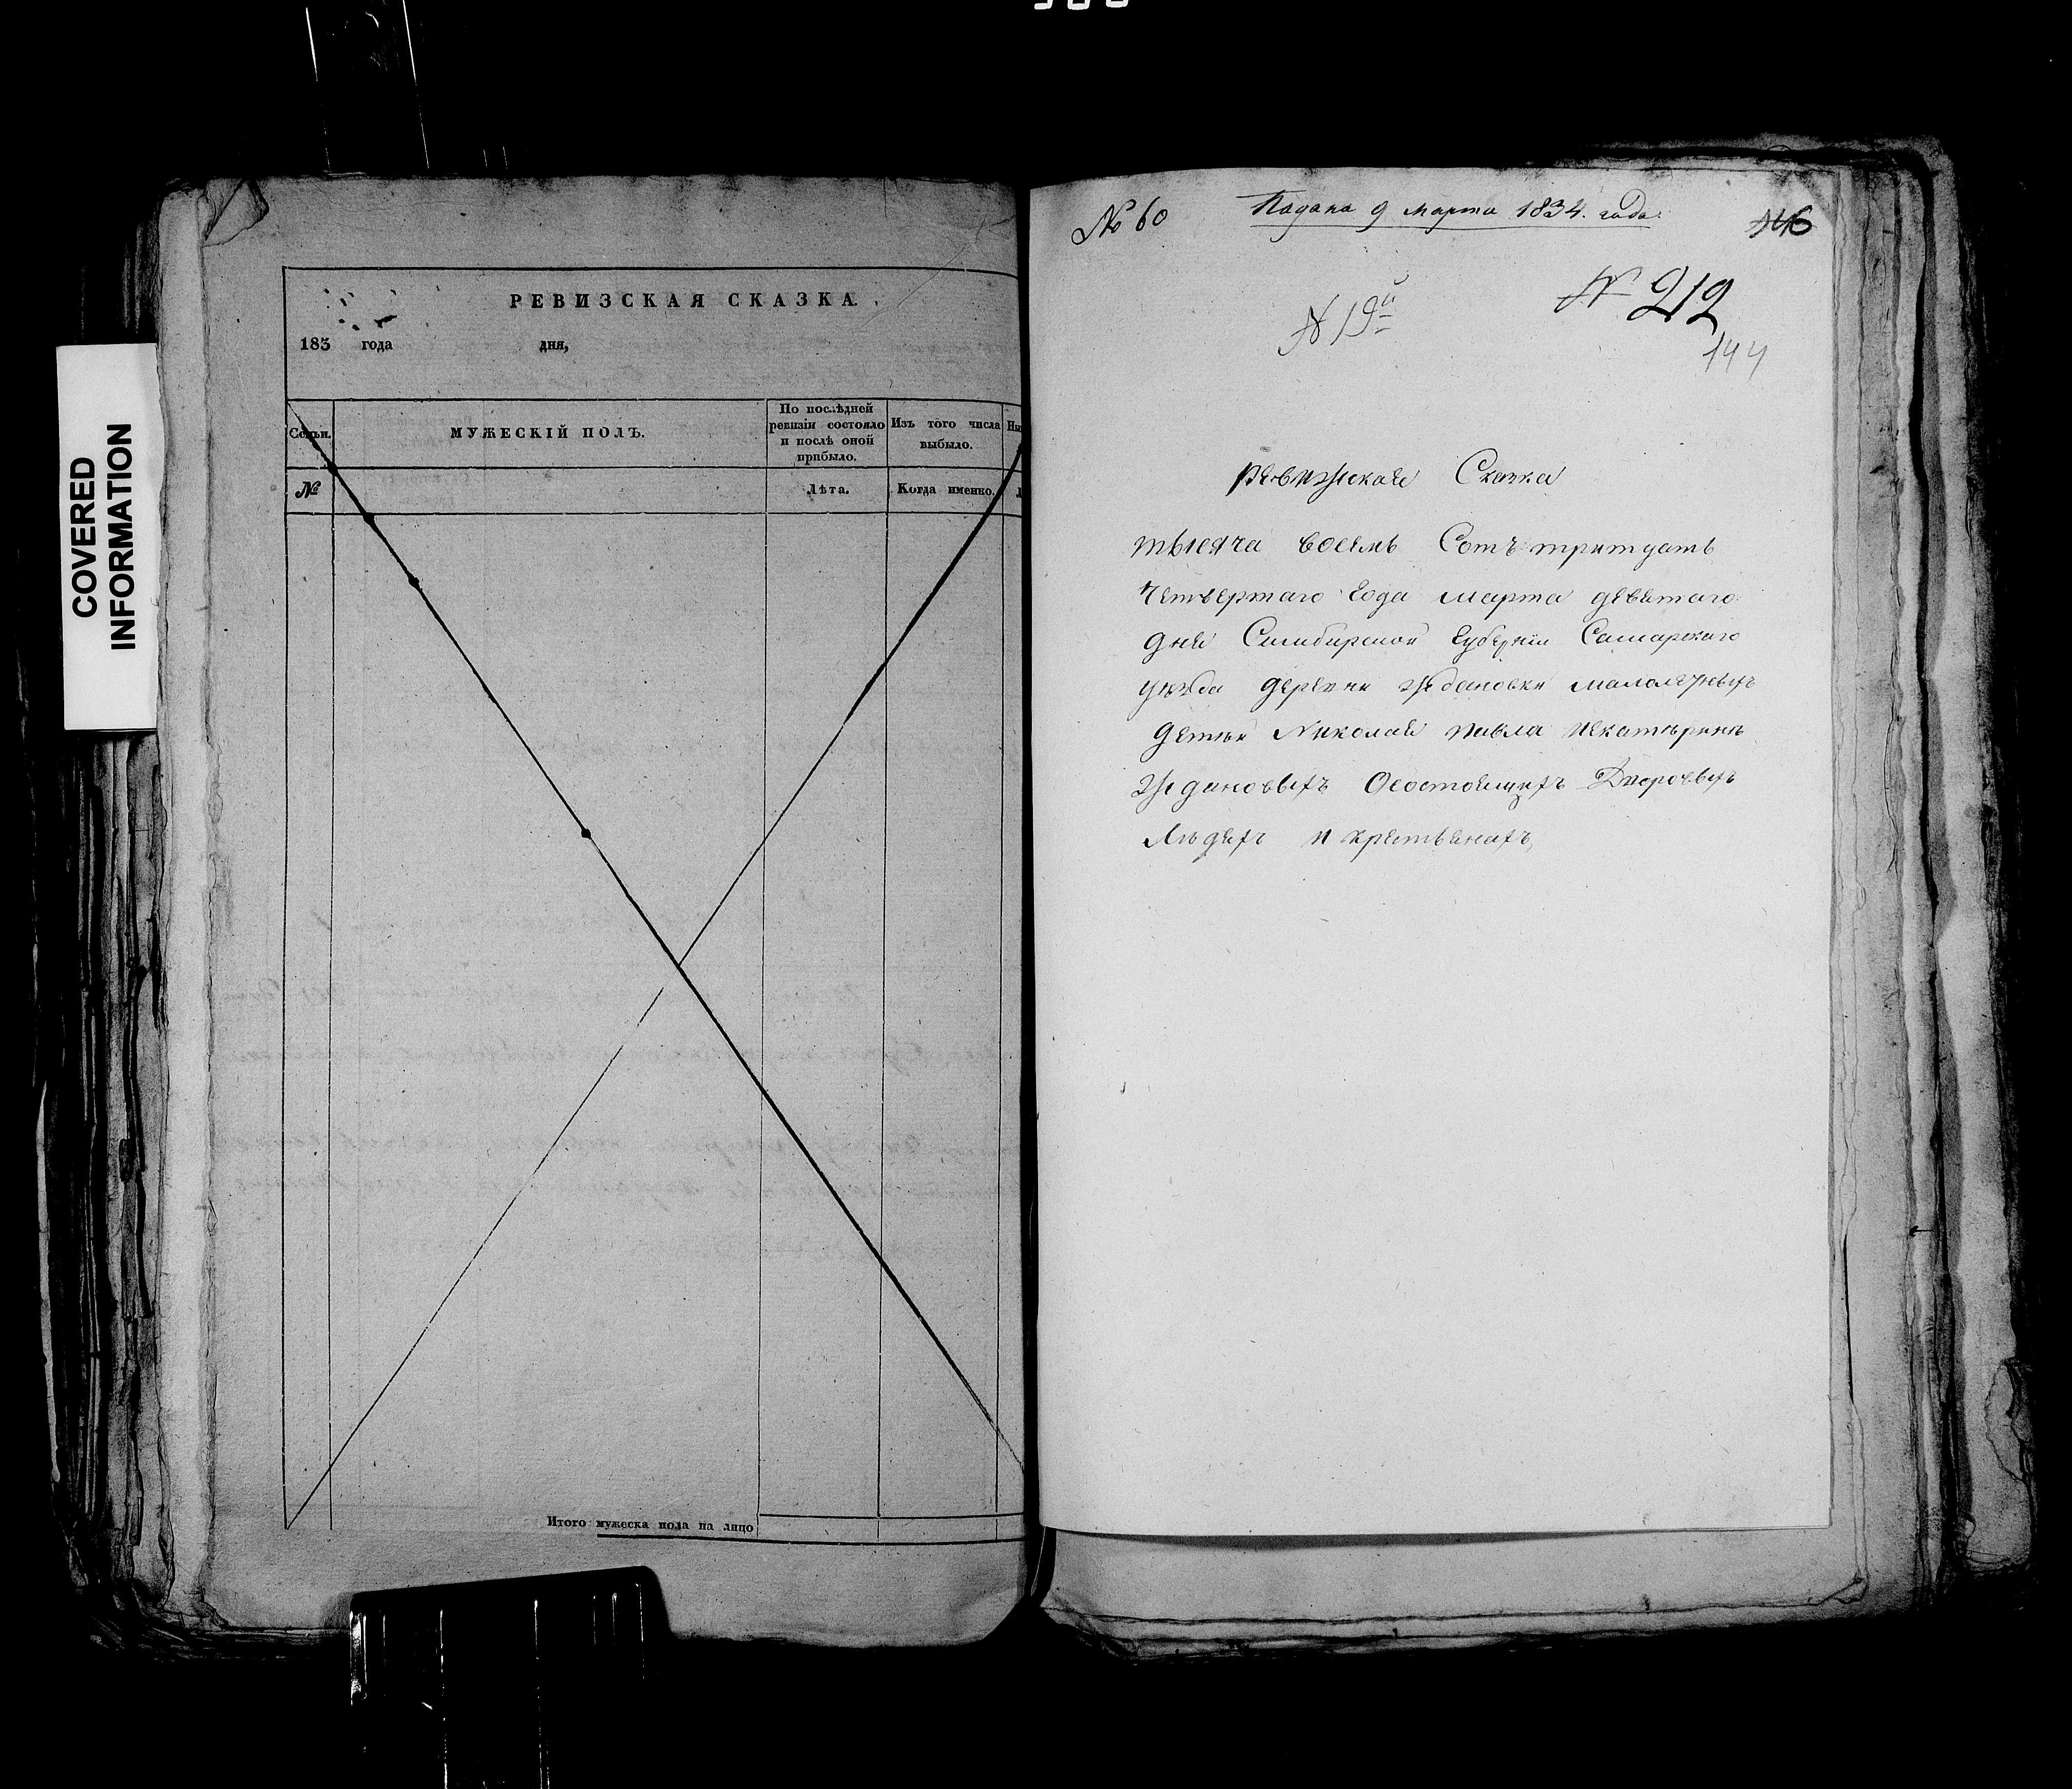 COVERED
INFORMATION
РЕВИЗСКАЯ СКАЗКА.
183 года дня,
Семьи.
МУЖЕСКІЙ ПОЛЪ.
По послѣдней
ревизіи состояло
и послѣ оной
прибыло.
Изъ того числа
выбыло.
№
Лѣта.
Когда именно.
Итого мужеска пола на лицо
№ 60
Подана 9 марта 1834. года.
146
№ 19й
№ 212
144
Ревижская Сказка
тысяча восемь Сотъ тритцать
Четвертаго Года марта девятаго
дня Симбирской Губерніи Самарскаго
уезда деревни Ждановки малолетныхъ
детей Николая Павла Искатерины
Ждановыхъ Осостоящихъ Дворовыхъ
Людехъ и крестьянахъ,